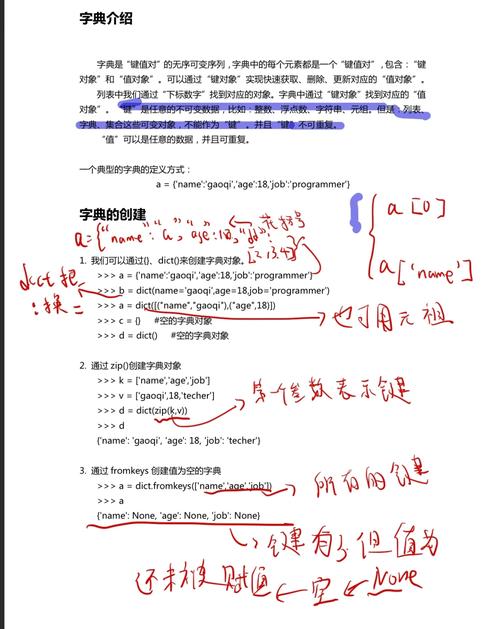 字典介绍
字典是“键值对”的无序可变序列，字典中的每个元素都是一个“键值对”，包含：“键
对象”和“值对象”。可以通过“键对象”实现快速获取、删除、更新对应的“值对象”。
列表中我们通过“下标数字”找到对应的对象。字典中通过“键对象”找到对应的“值
对象”。“键”是任意的不可变数据，比如：整数、浮点数、字符串、元组。但是：列表、
字典、集合这些可变对象，不能作为“键”。并且“键”不可重复。
“值”可以是任意的数据，并且可重复。
一个典型的字典的定义方式：
a = {'name':'gaoqi','age':18,'job':'programmer'}
a[0]
a['name']
字典的创建
花括号
a={"name":"a","age":18,"dd":
[2,13,4]}
1. 我们可以通过{}、dict()来创建字典对象。
>>> a = {'name':'gaoqi','age':18,'job':'programmer'}
>>> b = dict(name='gaoqi',age=18,job='programmer')
>>> a = dict([("name","gaoqi"),("age",18)])
>>> c = {} #空的字典对象
>>> d = dict() #空的字典对象
dict把
:换=
也可用元祖
2. 通过 zip()创建字典对象
>>> k = ['name','age','job']
>>> v = ['gaoqi',18,'techer']
>>> d = dict(zip(k,v))
>>> d
{'name': 'gaoqi', 'age': 18, 'job': 'techer'}
第一个参数表示键
3. 通过 fromkeys 创建值为空的字典
>>> a = dict.fromkeys(['name','age','job'])
>>> a
{'name': None, 'age': None, 'job': None}
所有的键
键有了但值为
None
空
还未被赋值